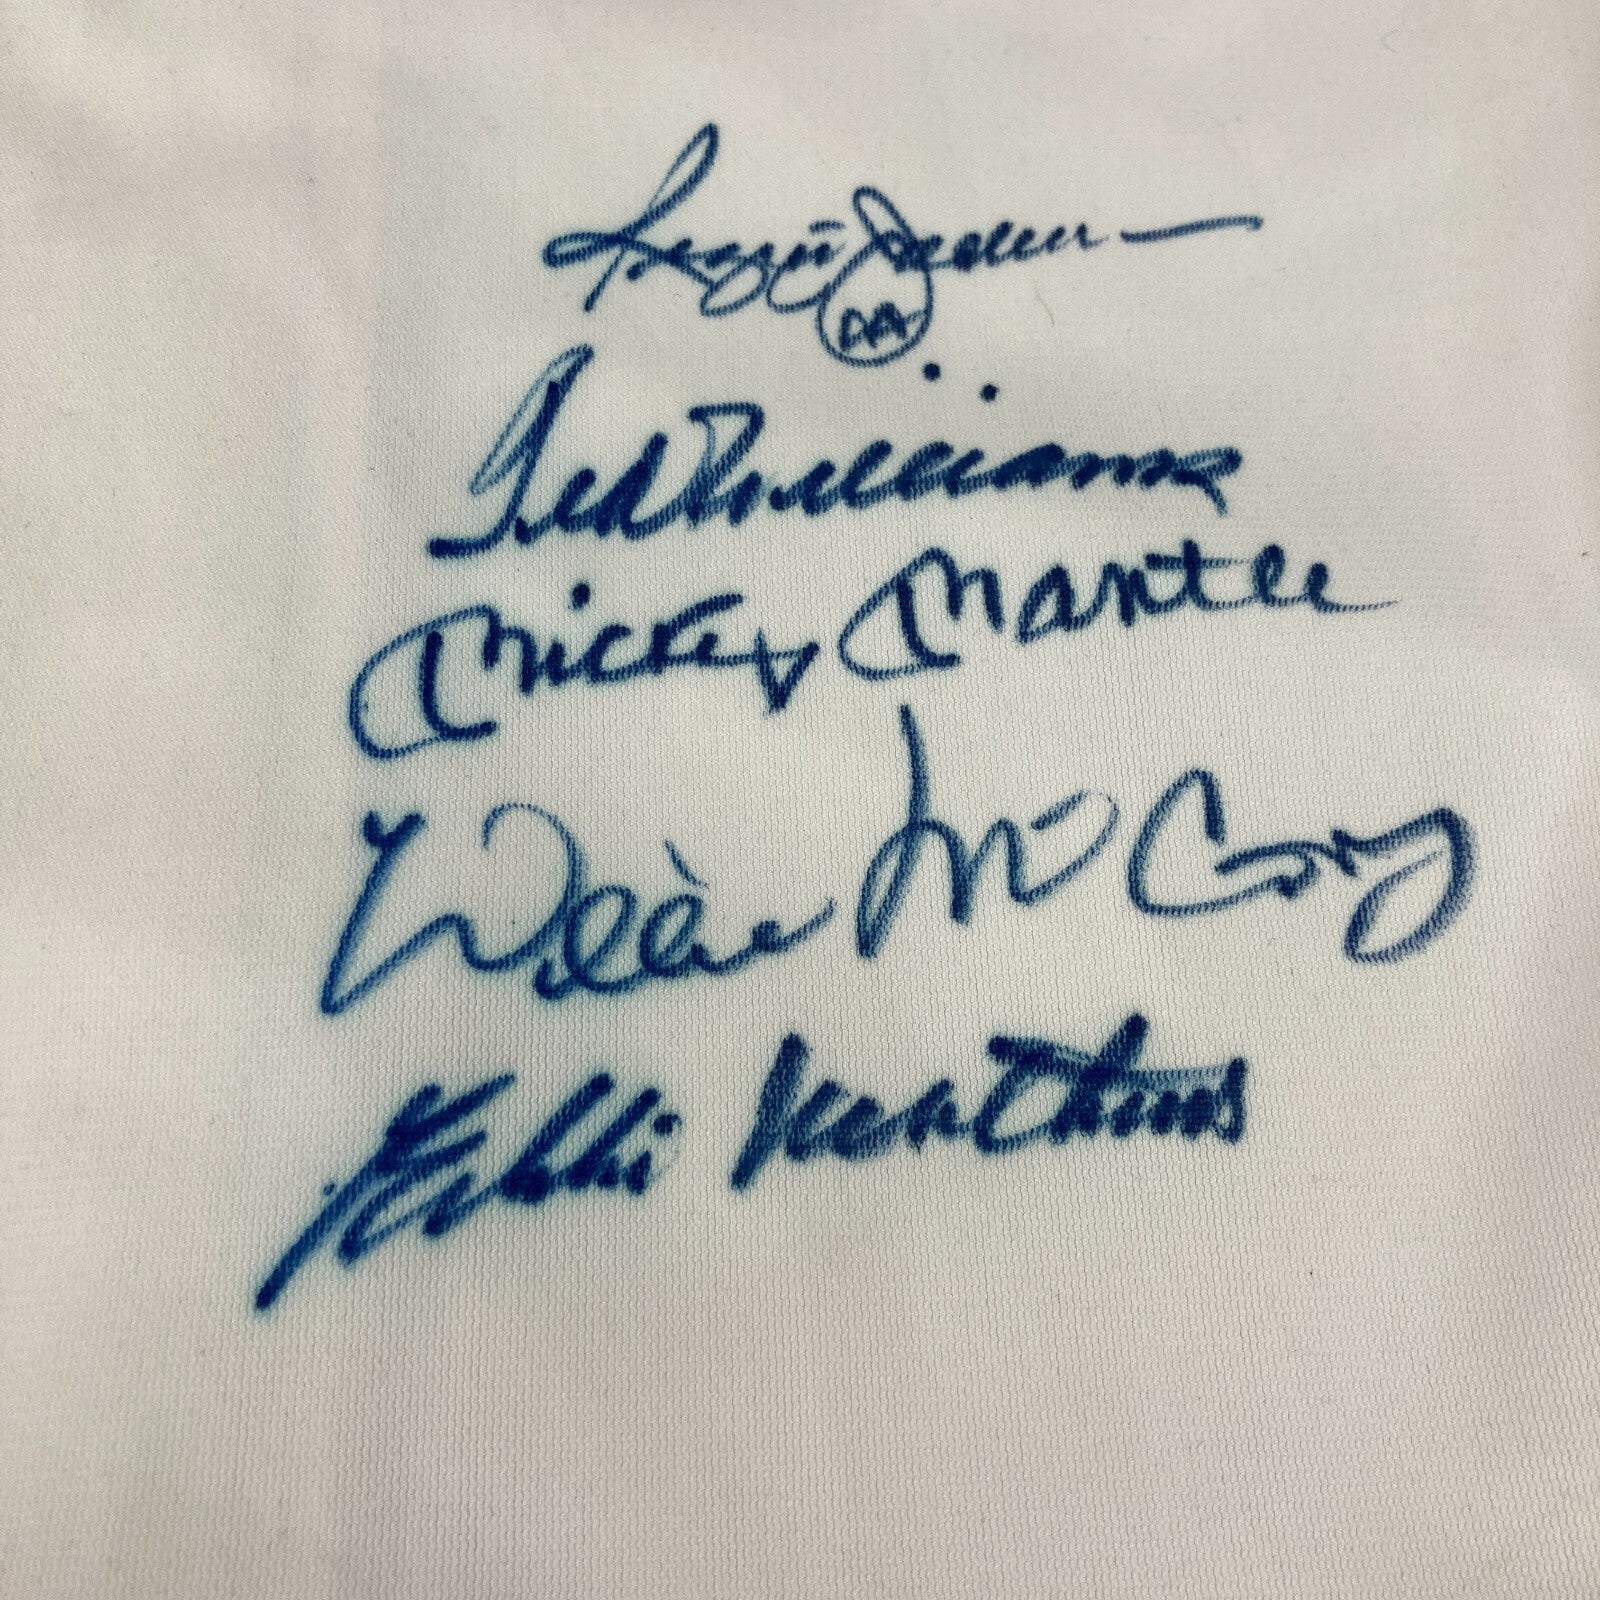 Reggie Jackson
Ted Williams
Mickey Mantle
Willie McCovey
Eddie Mathews